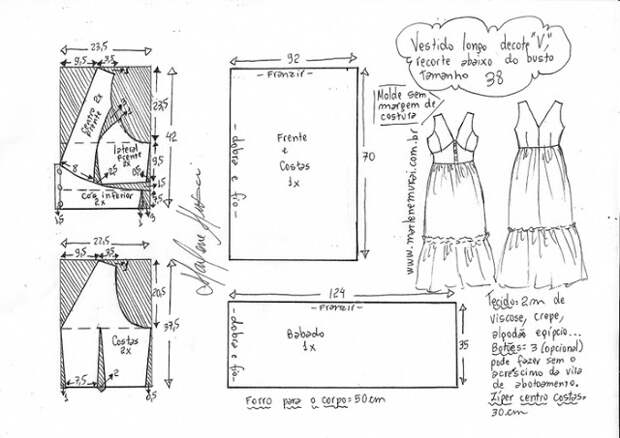 Vestido longo decote "V",
recorte abaixo do busto
Tamanho 38
Molde sem
margem de
costura
www.marlenemukai.com.br
23,5
9,5
3,5
centro
frente
2x
lateral
frente
2x
8
3,5
cos inferior
2x
1,5
23,5
42
9,5
1,5
22,5
9,5
3,5
Costas
2x
20,5
37,5
7,5
2
1
0,5
92
- Franzir -
- dobra e fio -
Frente
e
Costas
1x
70
124
- Franzir -
- dobra e fio -
Babado
1x
35
Forro para o corpo= 50cm
Tecido: 2m de
viscose, crepe,
algodão egípcio...
Botões= 3 (opcional)
pode fazer sem o
acréscimo da vila
de abotoamento.
Zíper centro costas=
30cm